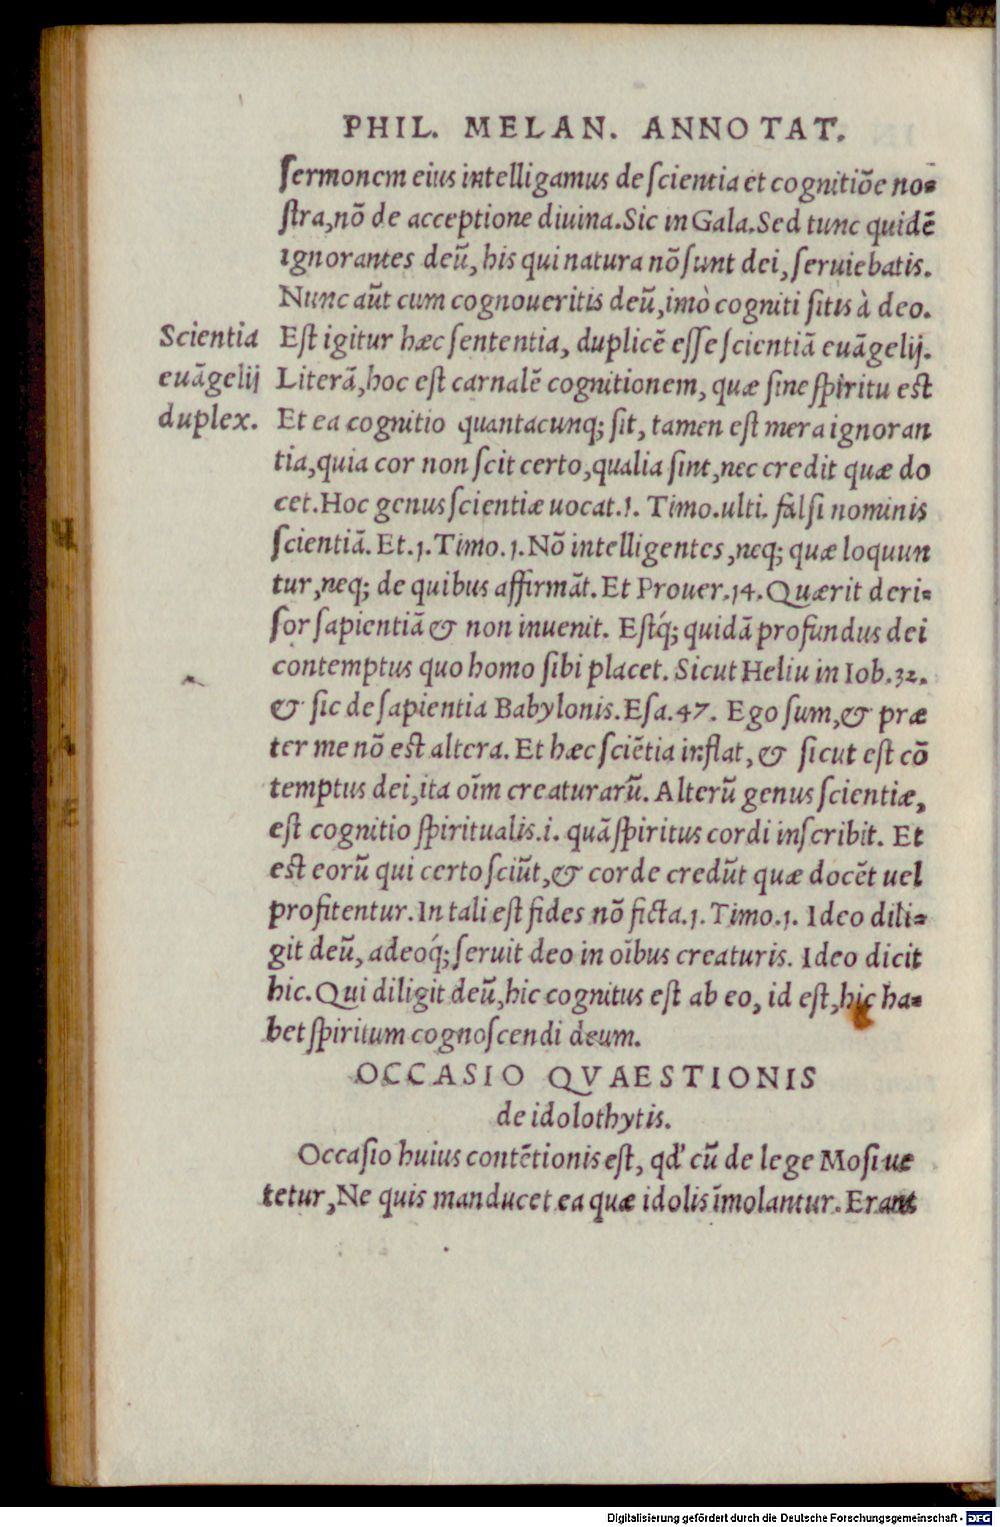 PHIL. MELAN. ANNOTAT.
ſermonem eius intelligamus de ſcientia et cognitiōe no⸗
ſtra,nō de acceptione diuina.Sic in Gala.Sed tunc quidē
ignorantes deū,his qui natura nō ſunt dei,ſeruiebatis.
Nunc aūt cum cognoueritis deū,imò cogniti ſitis à deo.
Scientia
euāgelij
duplex.
Eſt igitur hæc ſententia, duplicē eſſe ſcientiā euāgelij.
Literā,hoc eſt carnalē cognitionem, quæ ſine ſpiritu eſt
Et ea cognitio quantacunq; ſit, tamen eſt mera ignoran
tia,quia cor non ſcit certo,qualia ſint,nec credit quæ do
cet.Hoc genus ſcientiæ uocat.1. Timo.ulti. falſi nominis
ſcientiā. Et.1.Timo.1.Nō intelligentes,neq; quæ loquun
tur,neq; de quibus affirmāt.Et Prouer.14.Quærit deri⸗
ſor ſapientiā & non inuenit. Eſtq́; quidā profundus dei
contemptus quo homo ſibi placet. Sicut Heliu in Iob.32.
& ſic de ſapientia Babylonis.Eſa.47. Ego ſum,& præ
ter me nō eſt altera. Et hæc ſciētia inflat, & ſicut eſt cō
temptus dei,ita oīm creaturarū. Alterū genus ſcientiæ,
eſt cognitio ſpiritualis.i. quā ſpiritus cordi inſcribit. Et
eſt eorū qui certo ſciūt,& corde credūt quæ docēt uel
profitentur.In tali eſt fides nō ficta.1.Timo.1. Ideo dili⸗
git deū, adeoq́; ſeruit deo in oībus creaturis. Ideo dicit
hic.Qui diligit deū,hic cognitus eſt ab eo, id eſt,hic ha⸗
bet ſpiritum cognoſcendi deum.
OCCASIO QVAESTIONIS
de idolothytis.
Occaſio huius contētionis eſt, qď cū de lege Moſi ue
tetur,Ne quis manducet ea quæ idolis īmolantur. Erant
Digitalisierung gefördert durch die Deutsche Forschungsgemeinschaft - DFG